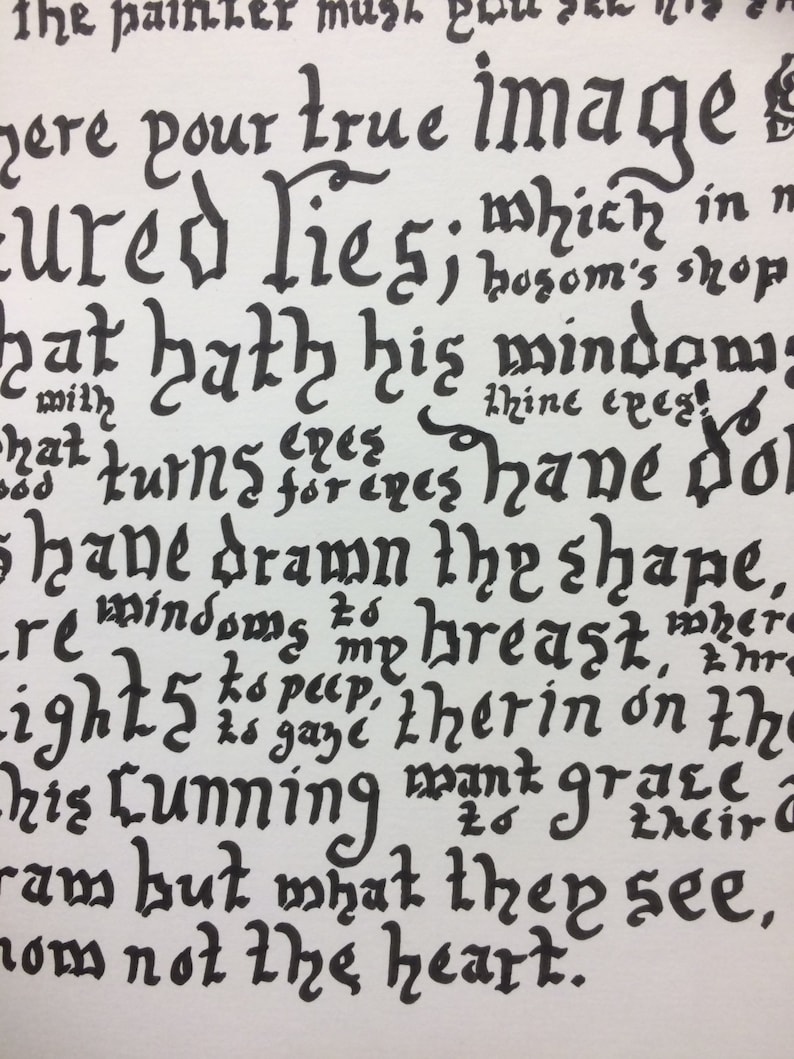 the painter must you see his
here your true image
tured lies; which in m
bosom's shop
hat hath his windows
with thine eyes!
hat turns eyes for eyes have do
ood
s have drawn thy shape,
re windows to my breast, where
thro
lights to peep, to gaze therin on the
his cunning want grace
to their
raw but what they see,
now not the heart.